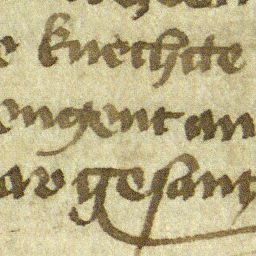 e knechtte
engent an
ar gesant